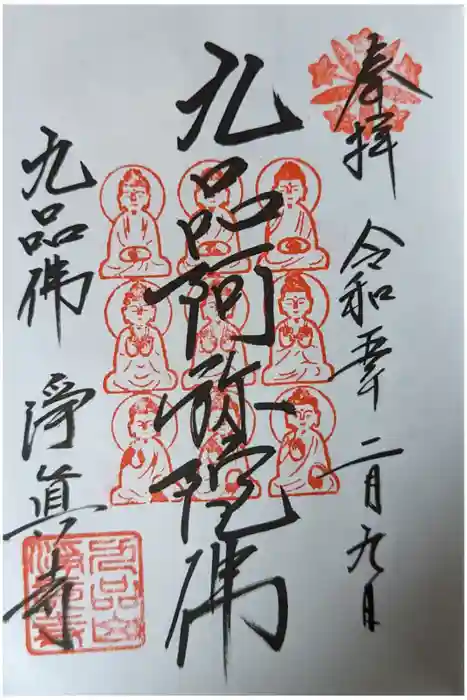 奉拝
令和五年二月九日
九品阿弥陀佛
九品佛
淨眞寺